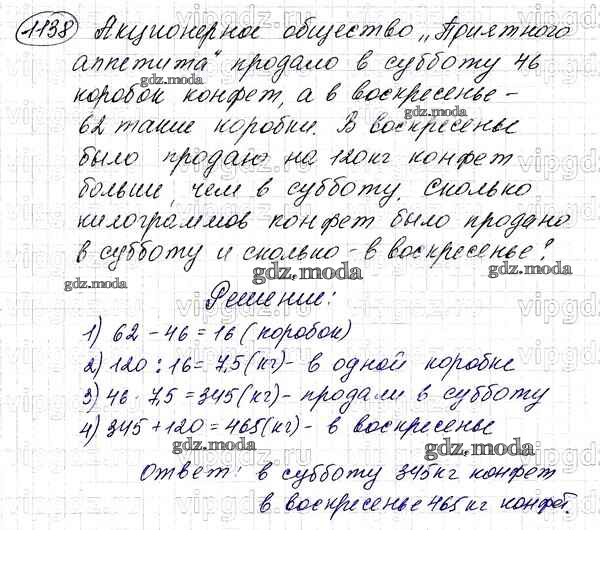 1138 Акционерное общество „Приятного
аппетита" продало в субботу 46
коробок конфет, а в воскресенье -
62 такие коробки. В воскресенье
было продано на 120кг конфет
больше, чем в субботу. Сколько
килограммов конфет было продано
в субботу и сколько - в воскресенье?
Решение:
1) 62 - 46 = 16 (коробок)
2) 120 : 16 = 7,5 (кг) - в одной коробке
3) 46 · 7,5 = 345 (кг) - продали в субботу
4) 345 + 120 = 465 (кг) - в воскресенье
Ответ: в субботу 345кг конфет
в воскресенье 465кг конфет.
gdz.moda